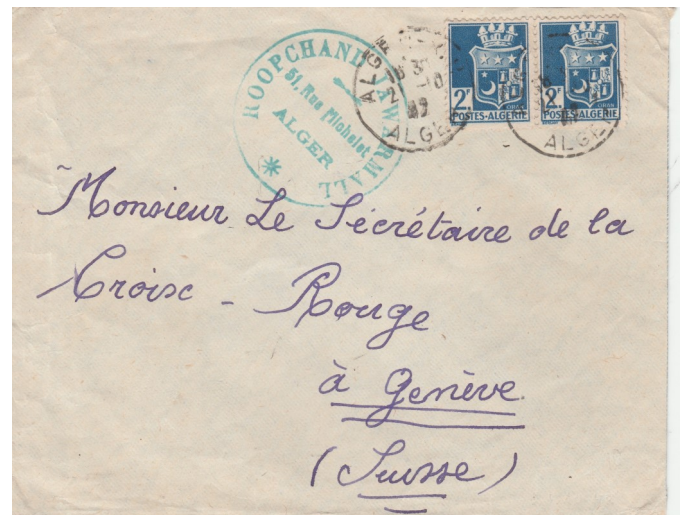 ROOPCHAND JAWERMALL
51, Rue Michelet
ALGER
ALGER
ALGER
2F
POSTES-ALGERIE
ORAN
2F
POSTES-ALGERIE
ORAN
ALGER
Monsieur Le Sécrétaire de la
Croix - Rouge
à Genève
(Suisse)